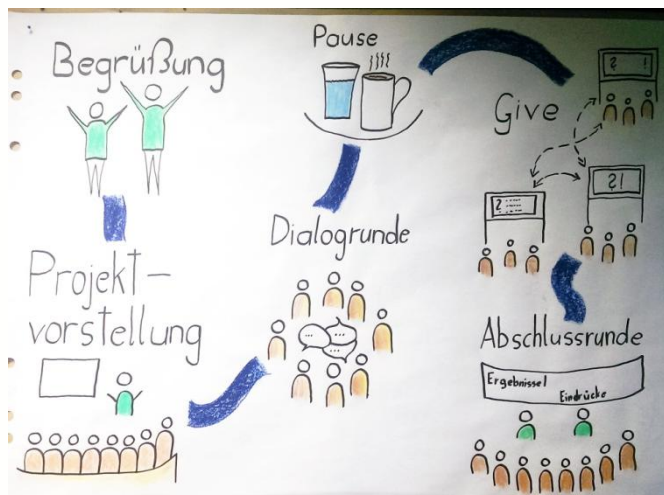 Begrüßung
Projekt-
vorstellung
Dialogrunde
...
...
...
Pause
Give
? !
? !
?
Abschlussrunde
Ergebnisse!
Eindrücke